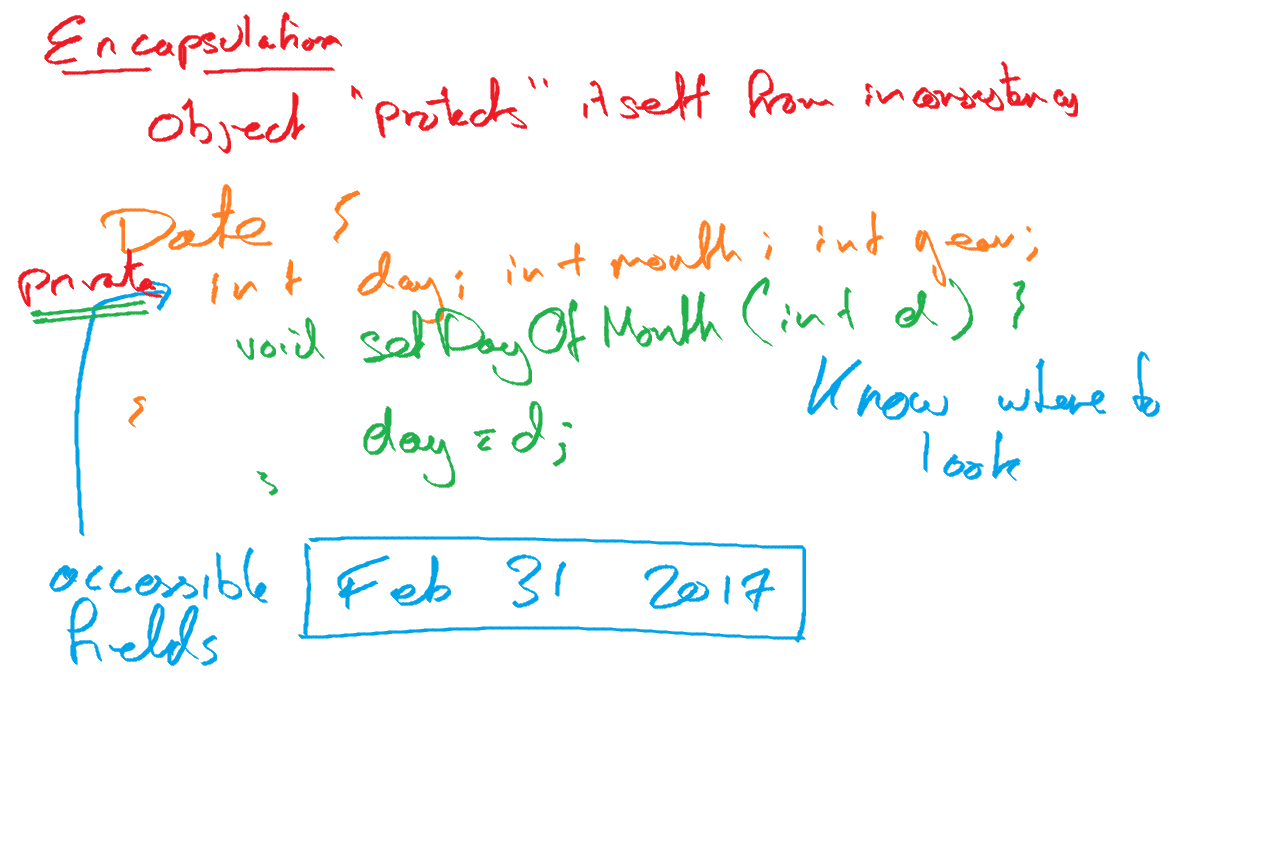 Encapsulation
Object "protects" itself from inconsistency
Date {
private int day; int month; int year;
void setDayOfMonth (int d) {
Know where to
look
}
day = d;
}
accessible
fields
Feb 31 2017